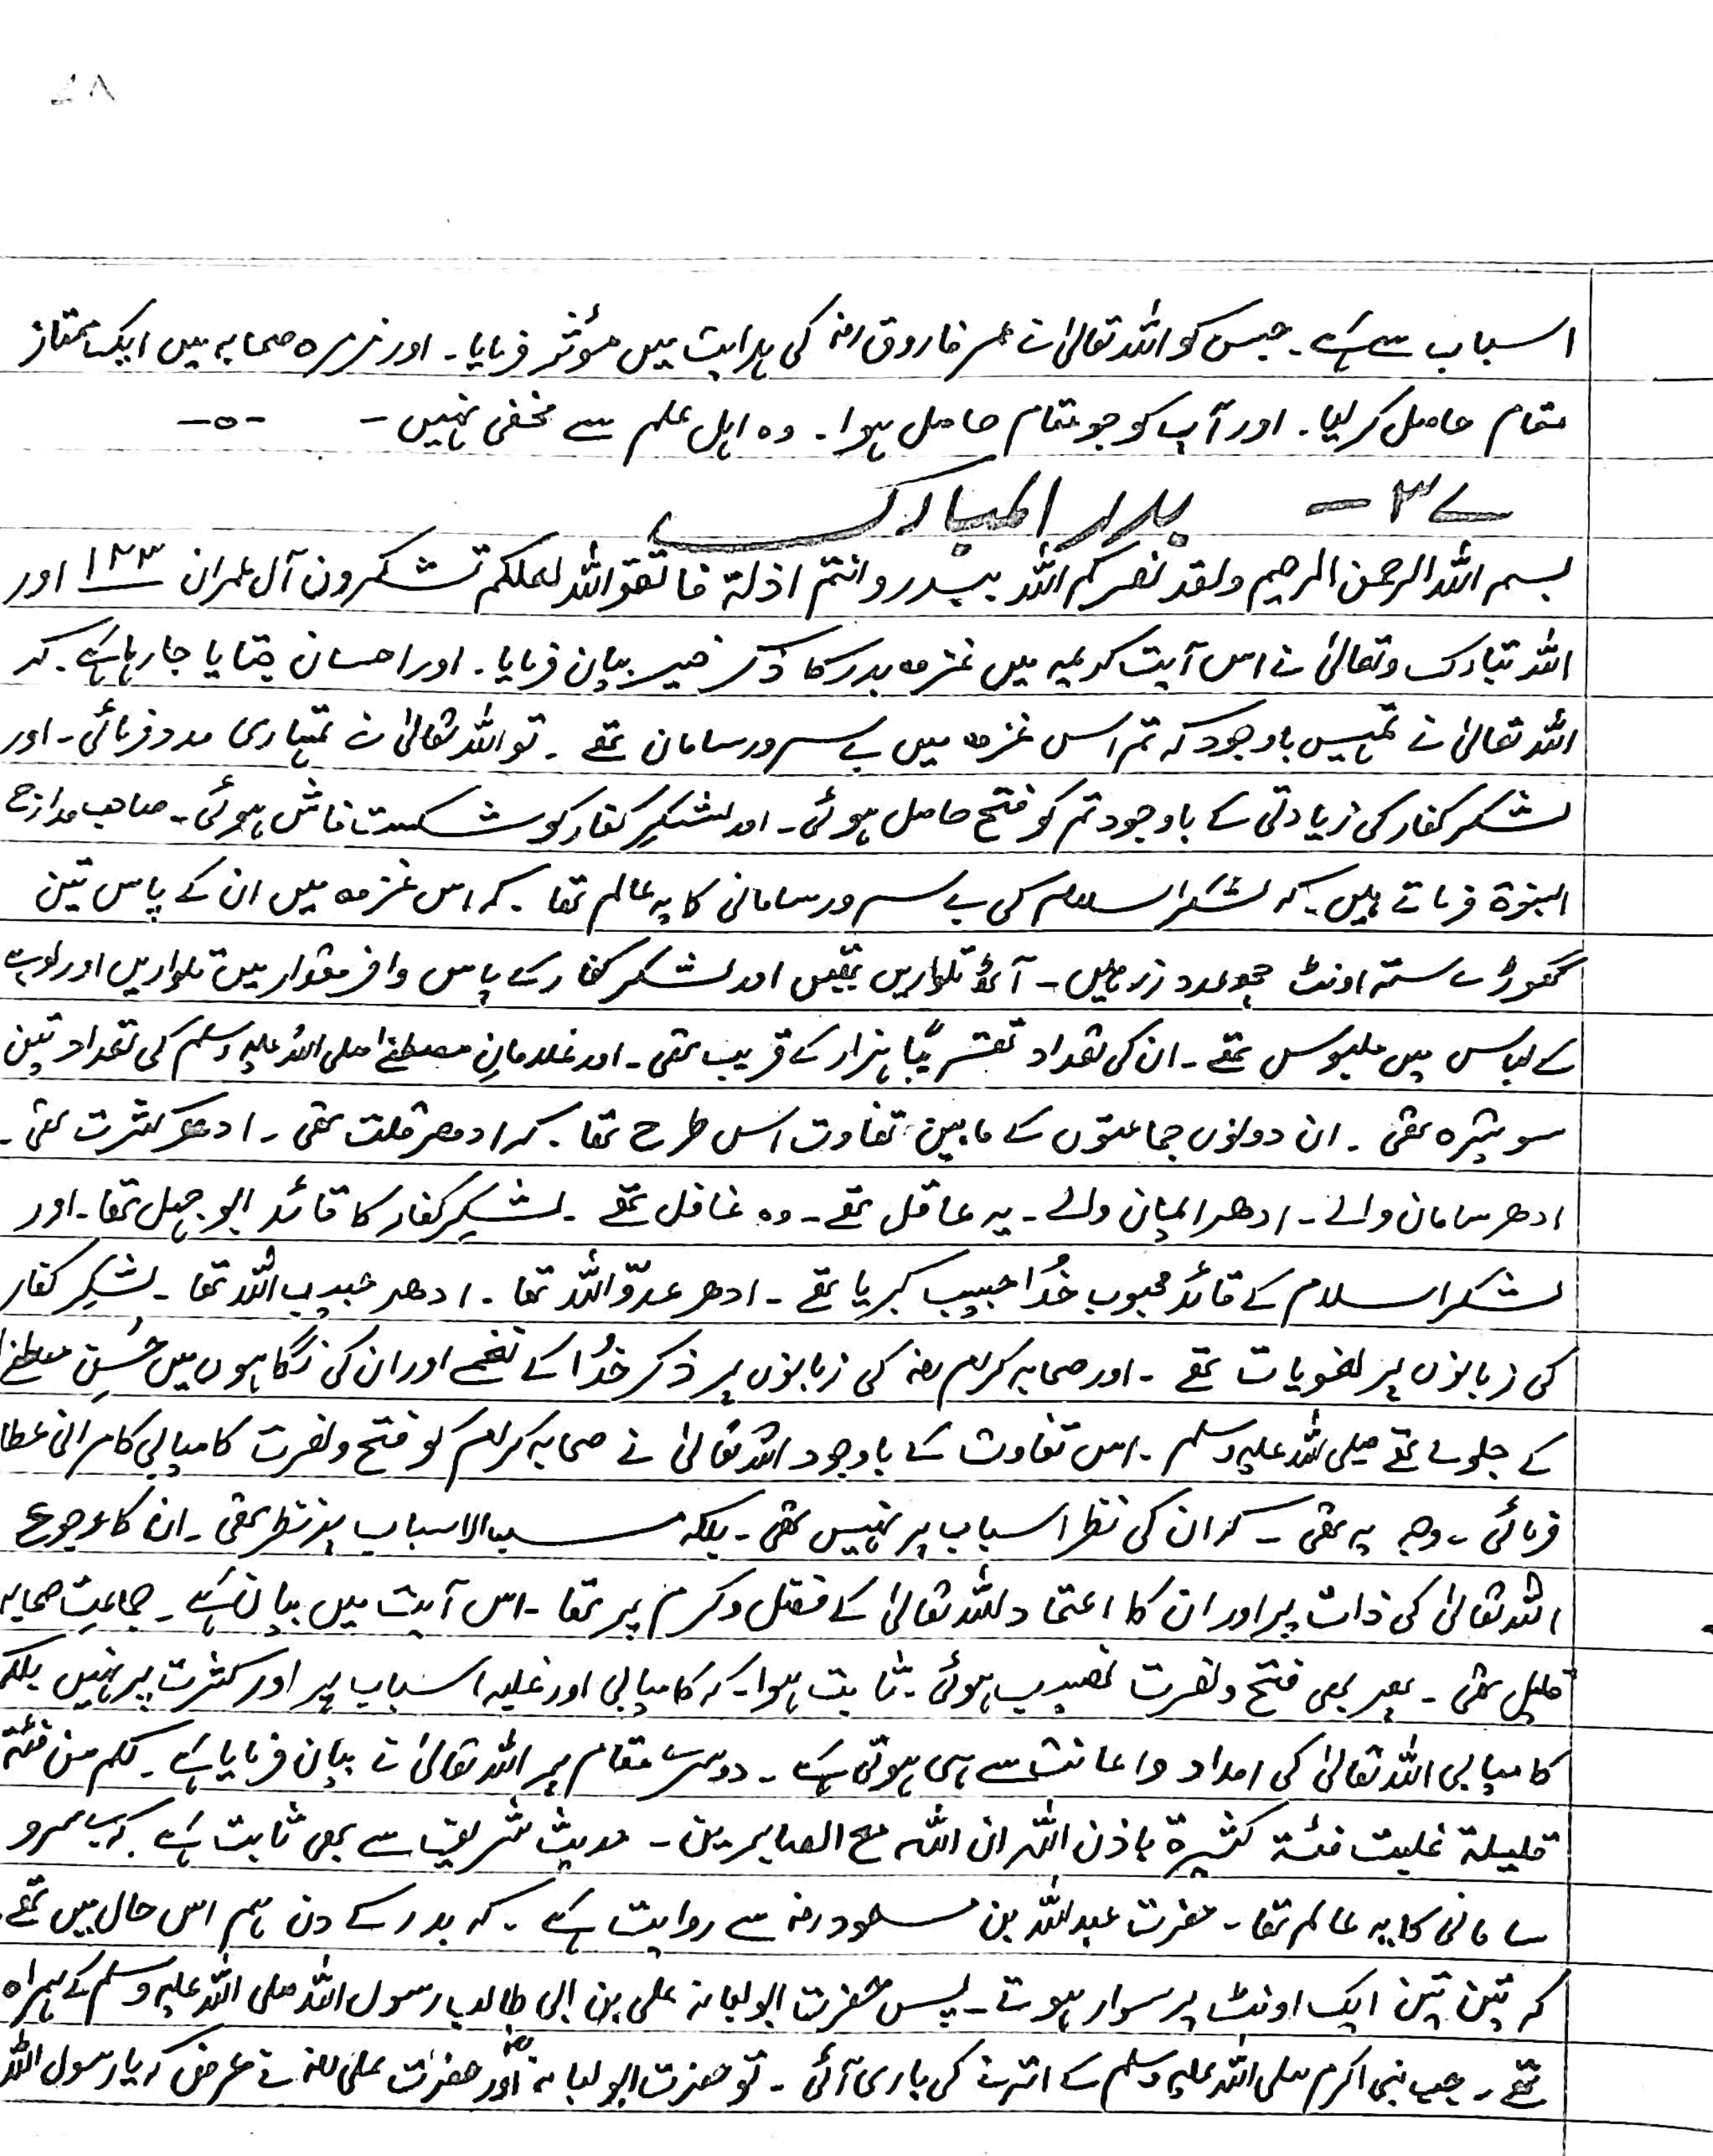 ۷۸
اسباب سے ہے۔ جس کو اللہ تعالیٰ نے عمر فاروق رضہ کی ہدایت میں مؤثر فرمایا۔ اور زمرہ صحابہ میں ایک ممتاز
مقام حاصل کر لیا۔ اور آپ کو جو مقام حاصل ہوا۔ وہ اہل علم سے مخفی نہیں ۔ -o-
۳۷ - بدر المبارک
بسم اللہ الرحمن الرحیم ولقد نصرکم اللہ ببدر وانتم اذلة فاتقو اللہ لعلکم تشکرون آل عمران ۱۲۳ اور
اللہ تبارک وتعالیٰ نے اس آیت کریمہ میں غزوہ بدر کا ذکر خیر بیان فرمایا۔ اور احسان جتایا جا رہا ہے۔ کہ
اللہ تعالیٰ نے تمہیں باوجود کہ تم اس غزوہ میں بے سرور سامان تھے ۔ تو اللہ تعالیٰ نے تمہاری مدد فرمائی۔ اور
لشکر کفار کی زیادتی کے باوجود تم کو فتح حاصل ہوئی۔ اور لشکرِ کفار کو شکست فاش ہوئی۔ صاحب مدارج
النبوۃ فرماتے ہیں۔ کہ لشکر اسلام کی بے سرور سامانی کا یہ عالم تھا۔ کہ اس غزوہ میں ان کے پاس تین
گھوڑے ستر اونٹ چھ عدد زرہیں۔ آٹھ تلواریں تھیں اور لشکر کفار کے پاس وافر مقدار میں تلواریں اور لوہے
کے لباس میں ملبوس تھے۔ ان کی تعداد تقریبًا ہزار کے قریب تھی۔ اور غلامانِ مصطفےٰ صلی اللہ علیہ وسلم کی تعداد تین
سو تیرہ تھی ۔ ان دونوں جماعتوں کے مابین تفاوت اس طرح تھا۔ کہ ادھر قلت تھی ۔ ادھر کثرت تھی۔
ادھر سامان والے۔ ادھر ایمان والے۔ یہ عاقل تھے۔ وہ غافل تھے ۔ لشکرِ کفار کا قائد ابو جہل تھا۔ اور
لشکر اسلام کے قائد محبوب خُدا حبیب کبریا تھے ۔ ادھر عدوّ اللہ تھا ۔ ادھر حبیب اللہ تھا ۔ لشکرِ کفار
کی زبانوں پر لغویات تھے ۔ اور صحابہ کرام رضہ کی زبانوں پر ذکر خُدا کے نغمے اور ان کی نگاہوں میں حُسنِ مصطفےٰ
کے جلوے تھے صلی اللہ علیہ وسلم ۔ اس تفاوت کے باوجود اللہ تعالیٰ نے صحابہ کرام کو فتح و نصرت کامیابی کامرانی عطا
فرمائی ۔ وجہ یہ تھی ۔ کہ ان کی نظر اسباب پر نہیں تھی ۔ بلکہ مسبب الاسباب پر نظر تھی ۔ ان کا رجوع
اللہ تعالیٰ کی ذات پر اور ان کا اعتماد اللہ تعالیٰ کے فضل و کرم پر تھا ۔ اس آیت میں بیان ہے ۔ جماعتِ صحابہ
قلیل تھی ۔ پھر بھی فتح و نصرت نصیب ہوئی ۔ ثابت ہوا۔ کہ کامیابی اور غلبہ اسباب پر اور کثرت پر نہیں بلکہ
کامیابی اللہ تعالیٰ کی امداد و اعانت سے ہی ہوتی ہے ۔ دوسرے مقام پر اللہ تعالیٰ نے بیان فرمایا ہے ۔ کم من فئة
قلیلة غلبت فئة کثیرة باذن اللہ ان اللہ مع الصابرین ۔ حدیث شریف سے بھی ثابت ہے ۔ کہ بے سرو
سامانی کا یہ عالم تھا ۔ حضرت عبداللہ بن مسعود رضہ سے روایت ہے ۔ کہ بدر کے دن ہم اس حال میں تھے۔
کہ تین تین ایک اونٹ پر سوار ہوتے ۔ پس حضرت ابولبابہ علی بن ابی طالب یا رسول اللہ صلی اللہ علیہ وسلم کے ہمراہ
تھے ۔ جب نبی اکرم صلی اللہ علیہ وسلم کے اترنے کی باری آئی ۔ تو حضرت ابولبابہ رضہ اور حضرت علی رضہ نے عرض کہ یا رسول اللہ